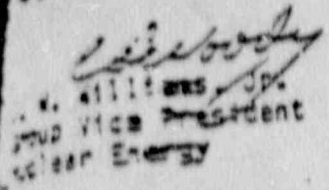 . W. Williams, Jr.
roup Vice President
uclear Energy